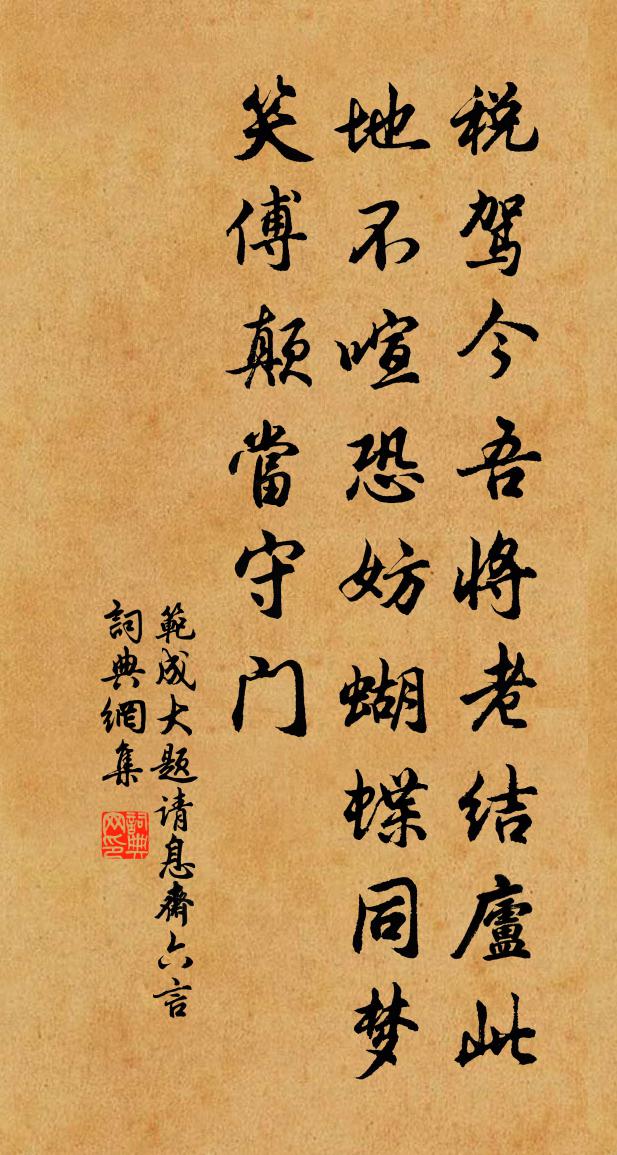 税驾今吾将老结廬此
地不喧恐妨蝴蝶同梦
笑傅颠當守门
範成大题请息齋六言
詞典網集
詞典网印